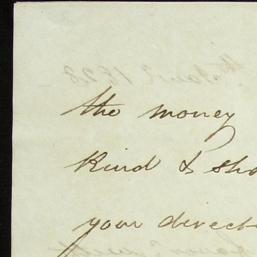 the money
Kind & sho
your direct